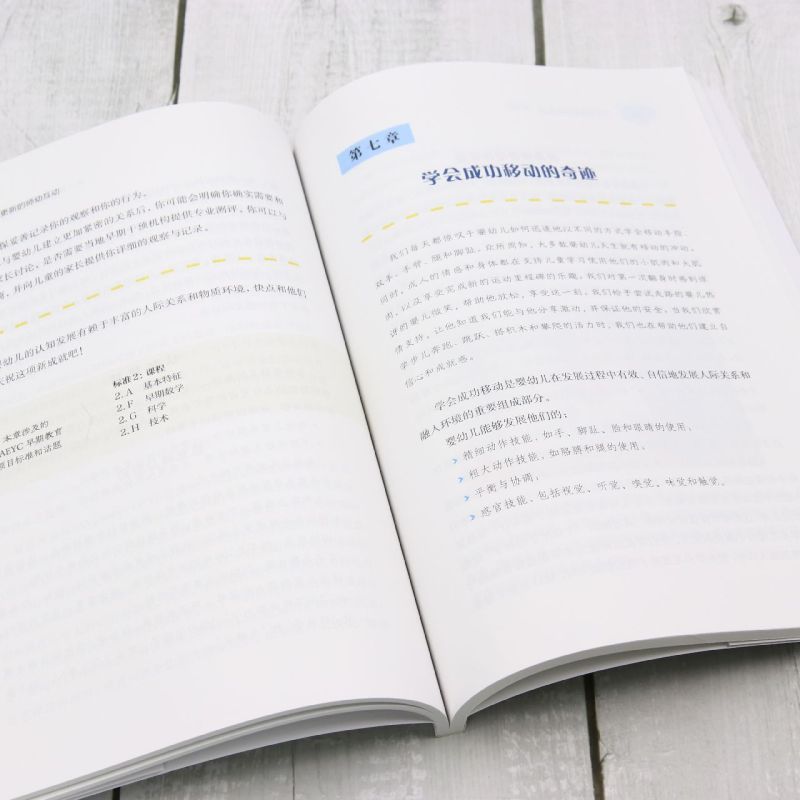 更新的师幼互动
保妥善记录你的观察和你的行为。
与婴幼儿建立更加紧密的关系后，你可能会明确你确实需要和
家长讨论，是否需要当地早期干预机构提供专业测评，你可以与
，并向儿童的家长提供你详细的观察与记录。
婴幼儿的认知发展有赖于丰富的人际关系和物质环境，快点和他们
庆祝这项新成就吧！
本章涉及的
AEYC 早期教育
项目标准和话题
标准2：课程
2.A 基本特征
2.F 早期数学
2.G 科学
2.H 技术
第七章
学会成功移动的奇迹
我们每天都惊叹于婴幼儿如何迅速地以不同的方式学会移动手指、
双手、手臂、腿和脚趾。众所周知，大多数婴幼儿天生就有移动的冲动。
同时，成人的情感和身体都在支持儿童学习使用他们的小肌肉和大肌
肉，以及享受完成新的运动里程碑的乐趣。我们对第一次翻身时感到惊
讶的婴儿微笑，帮助他放松，享受这一刻。我们给予尝试走路的婴儿热
情支持，让他知道我们能与他分享激动，并保证他的安全。当我们欣赏
学步儿奔跑、跳跃、搭积木和攀爬的活力时，我们也在帮助他们建立自
信心和成就感。
学会成功移动是婴幼儿在发展过程中有效、自信地发展人际关系和
融入环境的重要组成部分。
婴幼儿能够发展他们的：
精细动作技能，如手、脚趾、脸和眼睛的使用；
粗大动作技能，如胳膊和腿的使用；
平衡与协调；
感官技能，包括视觉、听觉、嗅觉、味觉和触觉。